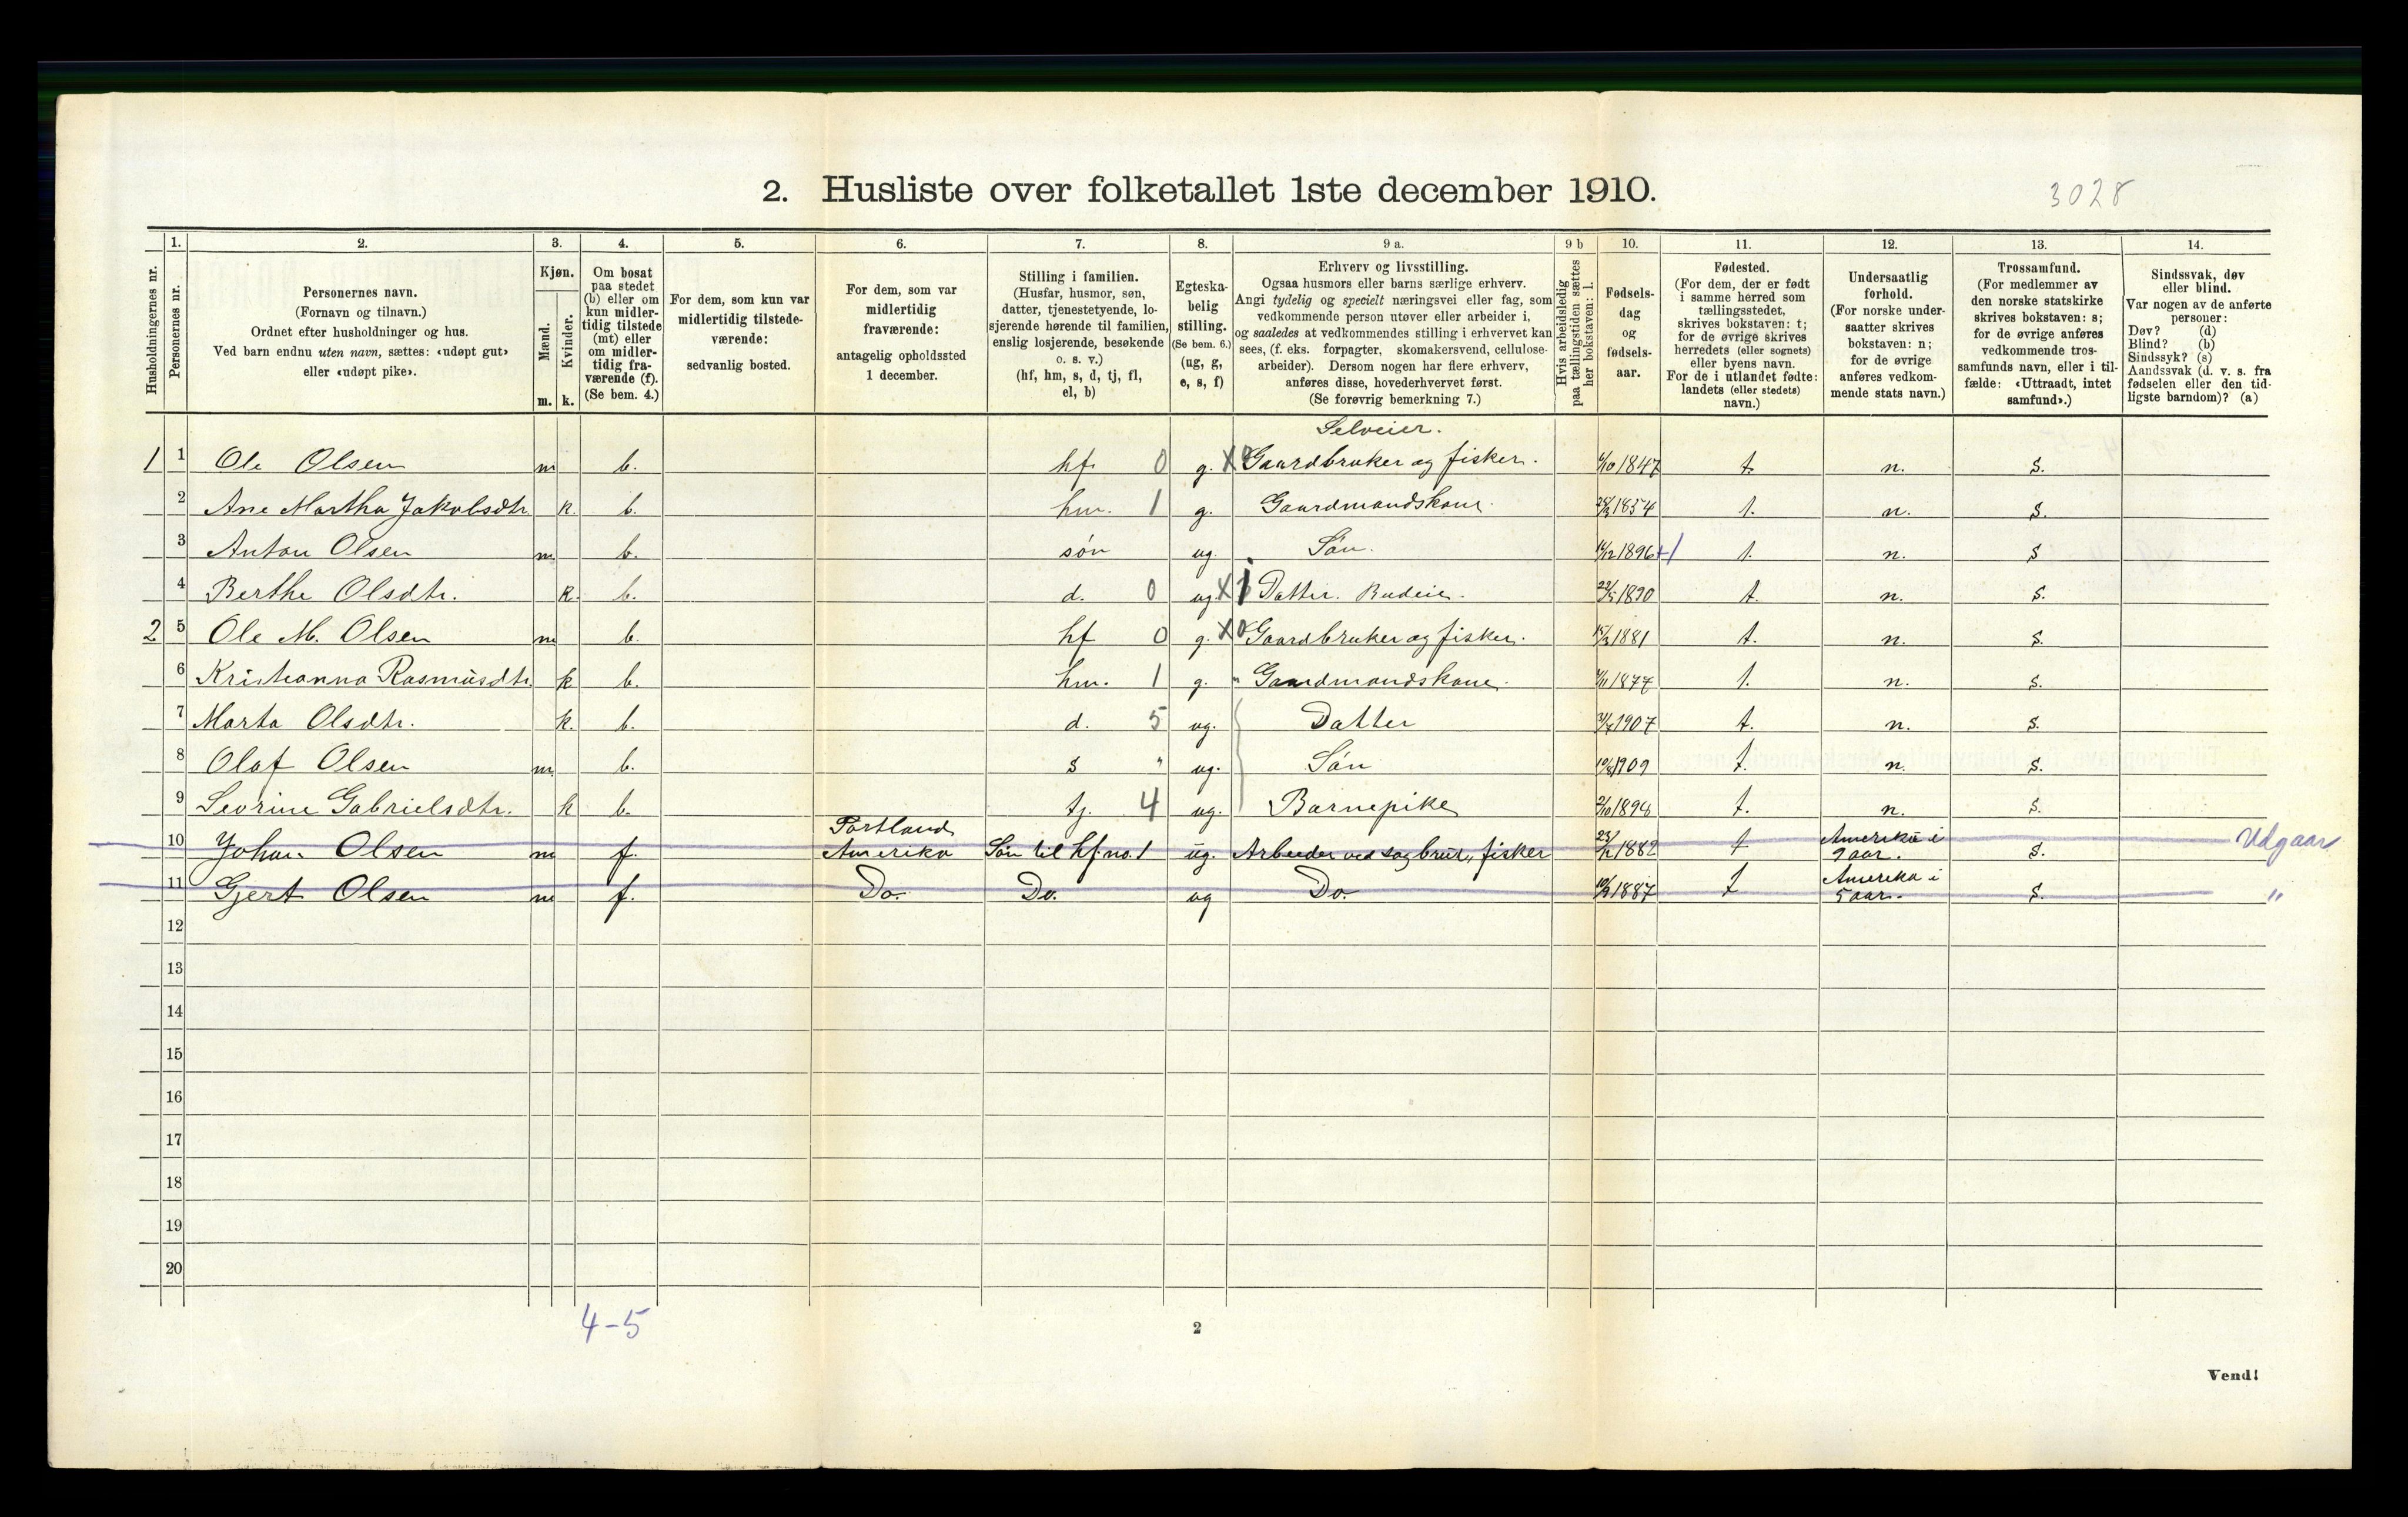 2. Husliste over folketallet 1ste december 1910.
3028
Husholdningernes nr.
1.
Personernes nr.
2.
Personernes navn.
(Fornavn og tilnavn.)
Ordnet efter husholdninger og hus.
Ved barn endnu uten navn, sættes: «udøpt gut»
eller «udøpt pike».
3.
Kjøn.
Mænd.
Kvinder.
m. k.
4.
Om bosat
paa stedet
(b) eller om
kun midler-
tidig tilstede
(mt) eller
om midler-
tidig fra-
værende (f).
(Se bem. 4.)
5.
For dem, som kun var
midlertidig tilstede-
værende:
sedvanlig bosted.
6.
For dem, som var
midlertidig
fraværende:
antagelig opholdssted
1 december.
7.
Stilling i familien.
(Husfar, husmor, søn,
datter, tjenestetyende, lo-
sjerende hørende til familien,
enslig losjerende, besøkende
o. s. v.)
(hf, hm, s, d, tj, fl,
el, b)
8.
Egteska-
belig
stilling.
(Se bem. 6.)
(ug, g,
e, s, f)
9 a.
Erhverv og livsstilling.
Ogsaa husmors eller barns særlige erhverv.
Angi tydelig og specielt næringsvei eller fag, som
vedkommende person utøver eller arbeider i,
og saaledes at vedkommendes stilling i erhvervet kan
sees, (f. eks. forpagter, skomakersvend, cellulose-
arbeider). Dersom nogen har flere erhverv,
anføres disse, hovederhvervet først.
(Se forøvrig bemerkning 7.)
9 b
Hvis arbeidsledig
paa tællingstiden sættes
her bokstaven: l.
10.
Fødsels-
dag
og
fødsels-
aar.
11.
Fødested.
(For dem, der er født
i samme herred som
tællingsstedet,
skrives bokstaven: t;
for de øvrige skrives
herredets (eller sognets)
eller byens navn.
For de i utlandet fødte:
landets (eller stedets)
navn.)
12.
Undersaatlig
forhold.
(For norske under-
saatter skrives
bokstaven: n;
for de øvrige
anføres vedkom-
mende stats navn.)
13.
Trossamfund.
(For medlemmer av
den norske statskirke
skrives bokstaven: s;
for de øvrige anføres
vedkommende tros-
samfunds navn, eller i til-
fælde: «Uttraadt, intet
samfund».)
14.
Sindssvak, døv
eller blind.
Var nogen av de anførte
personer:
Døv? (d)
Blind? (b)
Sindssyk? (s)
Aandssvak (d. v. s. fra
fødselen eller den tid-
ligste barndom)? (a)
Selveier.
1 1 Ole Olsen m b. hf. 0 g. X Gaardbruker og fisker. 1847 t. n. s.
2 Ane Martha Jakobsdtr. k. b. hm. 1 g. Gaardmandskone. 1854 t. n. s.
3 Anton Olsen m. b. søn ug. Søn. 14/12 1896 t. n. s
4 Berthe Olsdtr. k. b. d. 0 ug. X Datter. Budeie. 1890 t. n. s.
2 5 Ole M. Olsen m b. hf 0 g. X Gaardbruker og fisker. 1881 t. n. s.
6 Kristianna Rasmusdtr. k b. hm. 1 g. " Gaardmandskone. 1877 t. n. s.
7 Marta Olsdtr. k. b. d. 5 ug. Datter 1907 t. n. s.
8 Olaf Olsen m. b. s " ug. Søn 1909 t. n. s.
9 Sevrine Gabrielsdtr. k b. tj. 4 ug. Barnepike 1894 t. n. s.
Portland
10 Johan Olsen m f. Amerika Søn til hf. no. 1 ug. Arbeider ved sagbruk, fisker 1882 t Amerika i 9 aar. s. Udgaar
11 Gjert Olsen m f. Do. Do. ug Do. 1887 t Amerika i 5 aar. s. "
12
13
14
15
16
17
18
19
20
4-5
2
Vend!